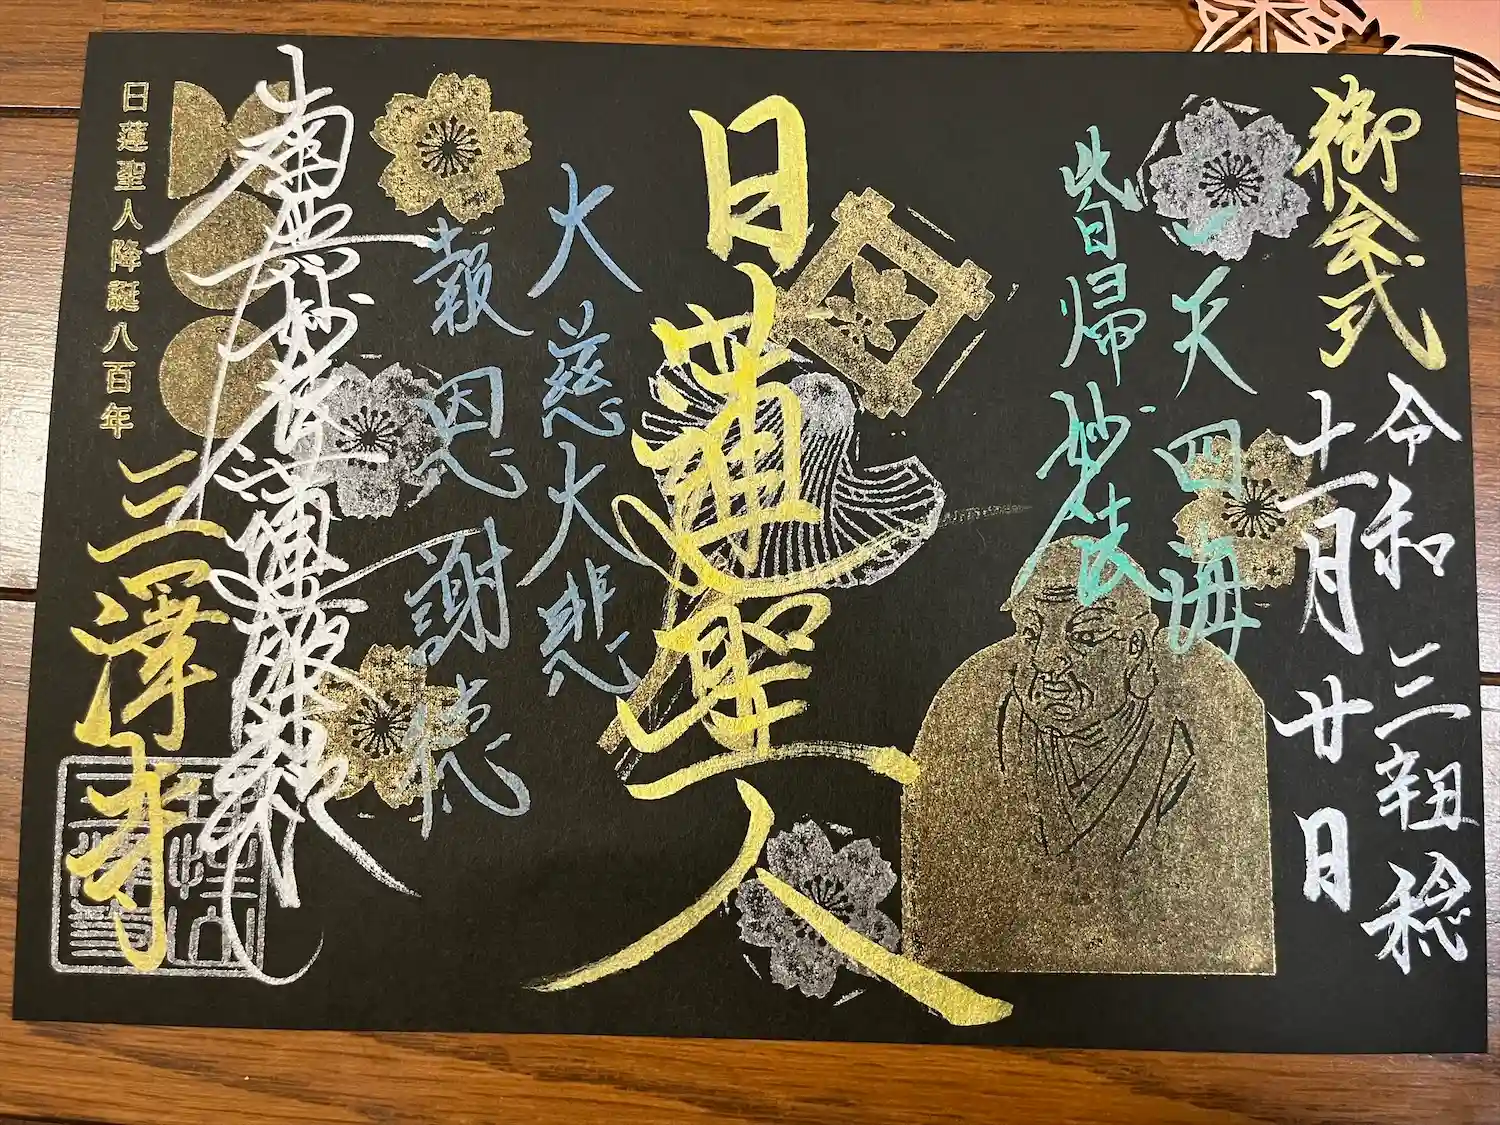 御会式
令和三辛丑稔
十一月廿日
一天四海
皆帰妙法
日蓮聖人
大慈大悲
報恩謝徳
南無妙法蓮華経
三澤寺
日蓮聖人降誕八百年